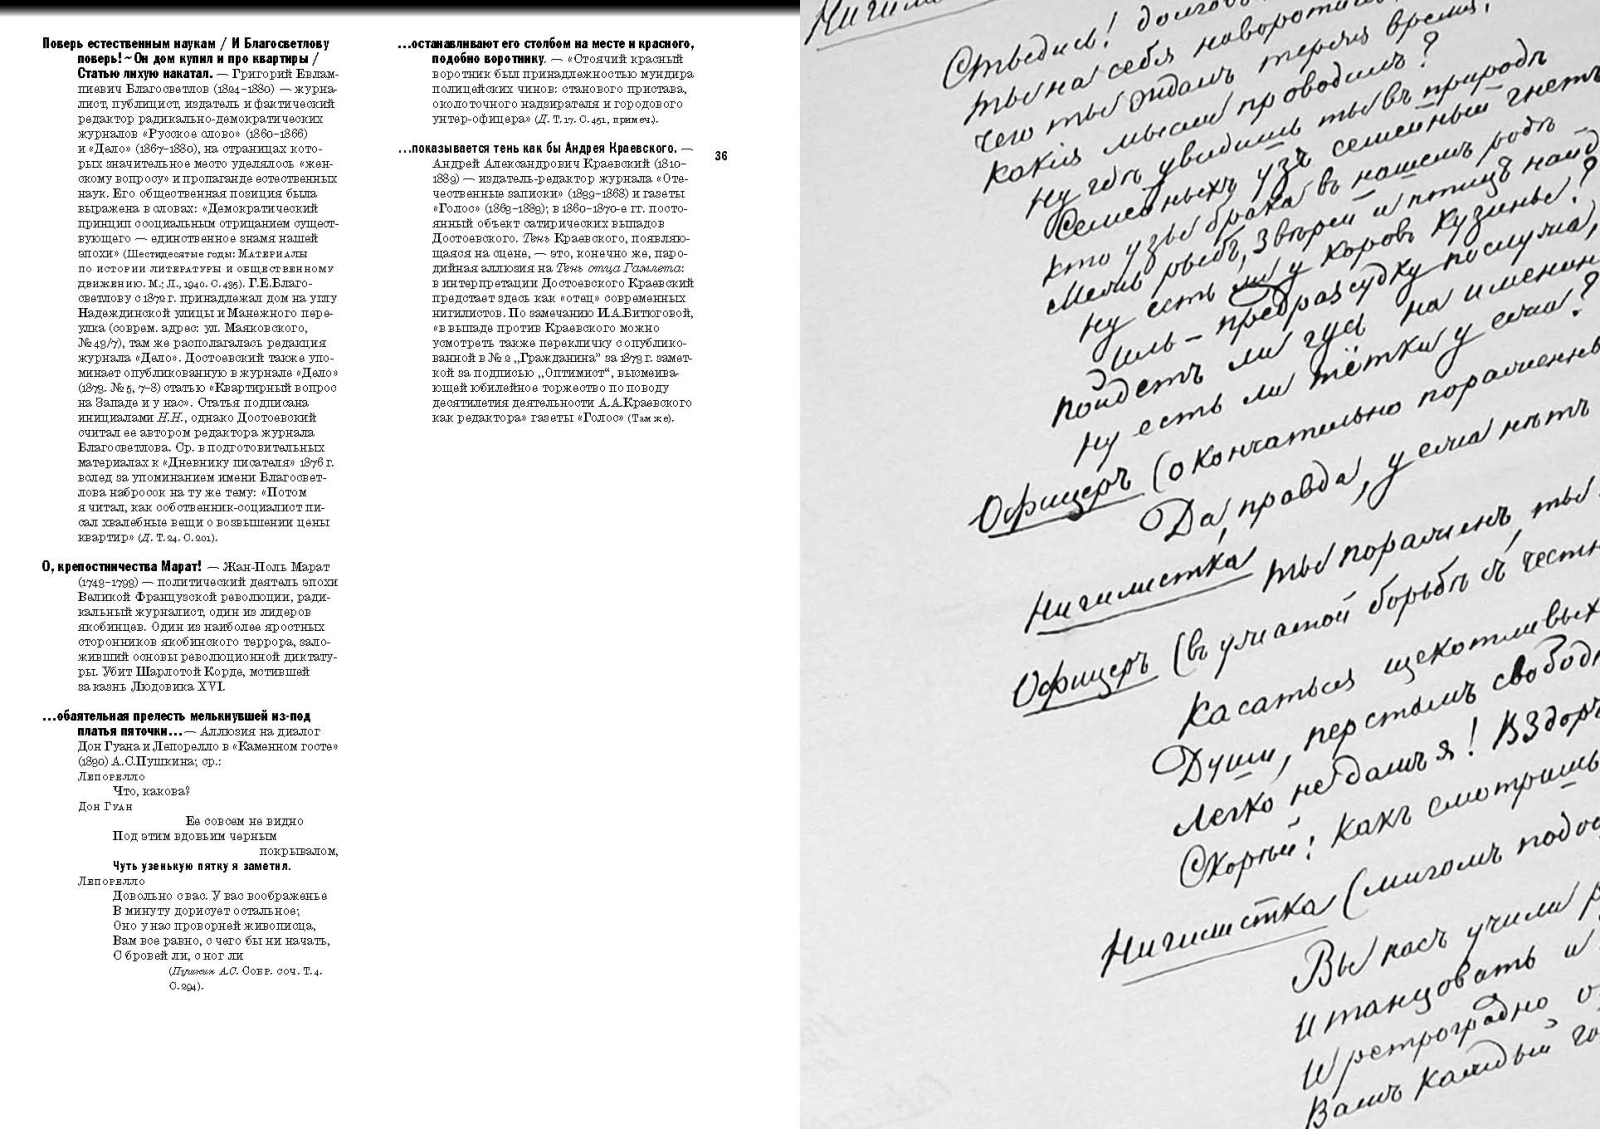 Поверь естественным наукам / И Благосветлову
поверь! ~ Он дом купил и про квартиры /
Статью лихую накатал. — Григорий Евлам-
пиевич Благосветлов (1824–1880) — журна-
лист, публицист, издатель и фактический
редактор радикально-демократических
журналов «Русское слово» (1860–1866)
и «Дело» (1867–1880), на страницах кото-
рых значительное место уделялось «жен-
скому вопросу» и пропаганде естественных
наук. Его общественная позиция была
выражена в словах: «Демократический
принцип с социальным отрицанием сущест-
вующего — единственное знамя нашей
эпохи» (Шестидесятые годы: Материалы
по истории литературы и общественному
движению. М.; Л., 1940. С. 435). Г.Е.Благо-
светлову с 1872 г. принадлежал дом на углу
Надеждинской улицы и Манежного пере-
улка (соврем. адрес: ул. Маяковского,
№ 43/7), там же располагалась редакция
журнала «Дело». Достоевский также упо-
минает опубликованную в журнале «Дело»
(1873. № 5, 7–8) статью «Квартирный вопрос
на Западе и у нас». Статья подписана
инициалами Н.Н., однако Достоевский
считал ее автором редактора журнала
Благосветлова. Ср. в подготовительных
материалах к «Дневнику писателя» 1876 г.
вслед за упоминанием имени Благосвет-
лова набросок на ту же тему: «Потом
я читал, как собственник-социалист пи-
сал хвалебные вещи о возвышении цены
квартир» (Д. Т. 24. С. 201).
О, крепостничества Марат! — Жан-Поль Марат
(1743–1793) — политический деятель эпохи
Великой Французской революции, ради-
кальный журналист, один из лидеров
якобинцев. Один из наиболее яростных
сторонников якобинского террора, зало-
живший основы революционной диктату-
ры. Убит Шарлотой Корде, мстившей
за казнь Людовика XVI.
…обаятельная прелесть мелькнувшей из-под
платья пяточки… — Аллюзия на диалог
Дон Гуана и Лепорелло в «Каменном госте»
(1830) А.С.Пушкина; ср.:
Лепорелло
Что, какова?
Дон Гуан
Ее совсем не видно
Под этим вдовьим черным
покрывалом,
Чуть узенькую пятку я заметил.
Лепорелло
Довольно с вас. У вас воображенье
В минуту дорисует остальное;
Оно у нас проворней живописца,
Вам все равно, с чего бы ни начать,
С бровей ли, с ног ли
(Пушкин А.С. Собр. соч. Т. 4.
С. 294).
…останавливают его столбом на месте и красного,
подобно воротнику. — «Стоячий красный
воротник был принадлежностью мундира
полицейских чинов: станового пристава,
околоточного надзирателя и городового
унтер-офицера» (Д. Т. 17. С. 451, примеч.).
…показывается тень как бы Андрея Краевского. —
Андрей Александрович Краевский (1810–
1889) — издатель-редактор журнала «Оте-
чественные записки» (1839–1868) и газеты
«Голос» (1863–1883); в 1860–1870-е гг. посто-
янный объект сатирических выпадов
Достоевского. Тень Краевского, появляю-
щаяся на сцене, — это, конечно же, паро-
дийная аллюзия на Тень отца Гамлета:
в интерпретации Достоевского Краевский
предстает здесь как «отец» современных
нигилистов. По замечанию И.А.Битюговой,
«в выпаде против Краевского можно
усмотреть также перекличку с опублико-
ванной в № 2 „Гражданина“ за 1873 г. замет-
кой за подписью „Оптимист“, высмеива-
ющей юбилейное торжество по поводу
десятилетия деятельности А.А.Краевского
как редактора» газеты «Голос» (Там же).
36
Стыдись!
ты на себя наворотила
Чего ты ждешь теряя время,
Какія мысли проводишь?
Ну гдѣ увидишь ты въ природѣ
Семейныхъ узъ семейный гнетъ
Кто узы брака въ нашемъ родѣ —
Межъ рыбъ, звѣрей и птицъ найд
Ну есть ли у коровъ кузины?
Иль — предразсудку послужа,
Пойдетъ ли гусь на именин
Ну есть ли тётки у ежа?
Офицеръ (окончательно пораженны
Да, правда, у ежа нѣтъ
Нигилистка ты пораженъ, ты
Офицеръ (въ ужасной борьбѣ съ честн
Касаться щекотливыхъ
Души, перстомъ свободн
Легко не дамъ я! Вздоръ
Скорѣй! Какъ смотришь
Нигилистка (мигомъ подос
Вы насъ учили
И танцовать и
И ретроградно
Вамъ каждый го